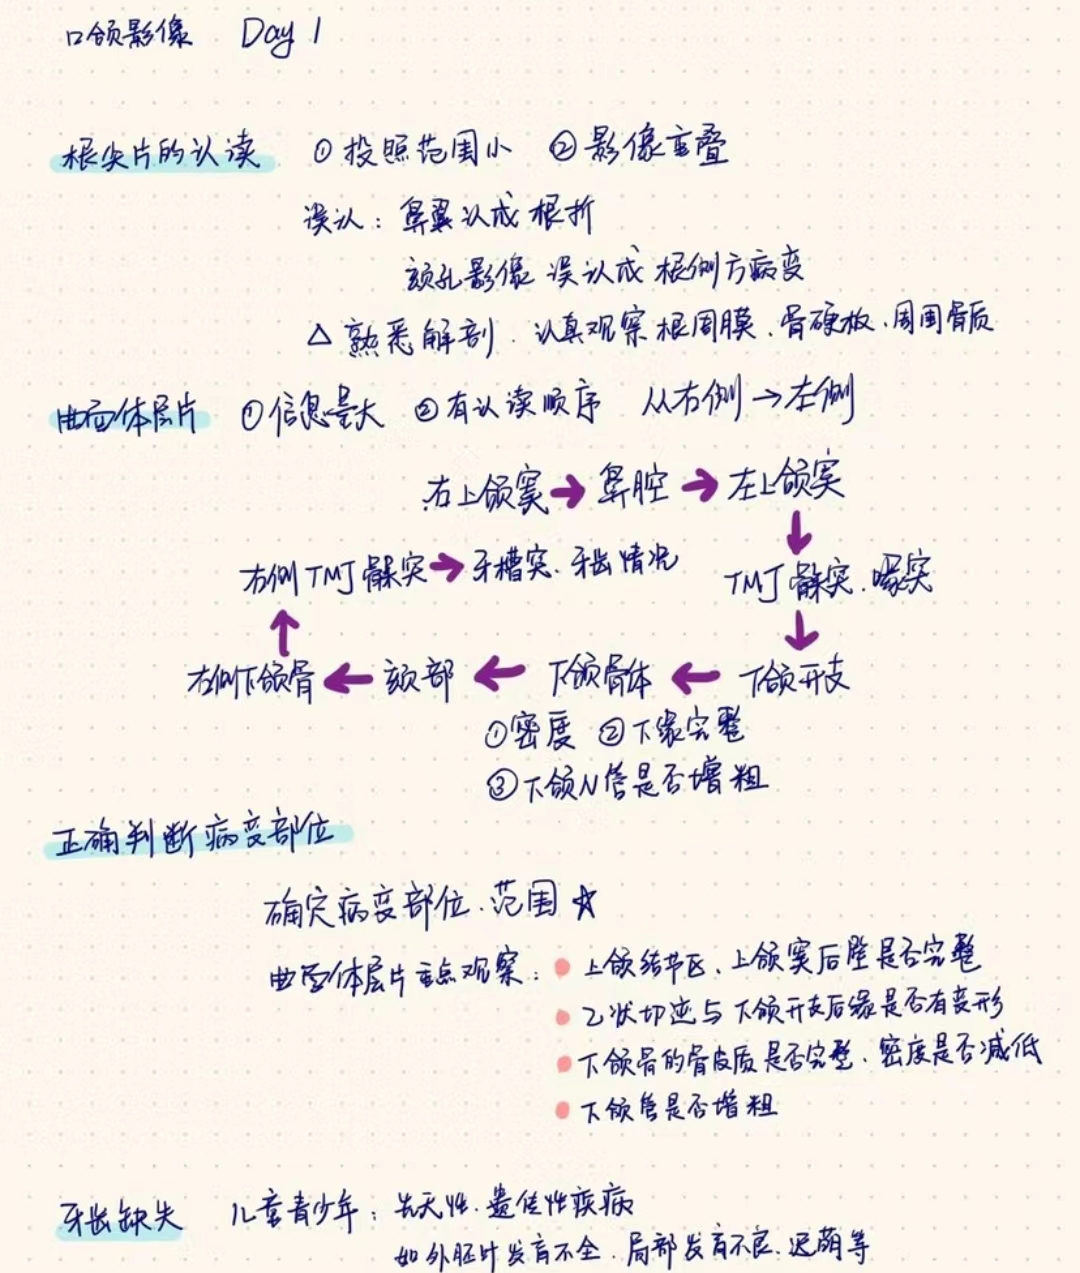 口颌影像 Day 1
根尖片的认读 ①投照范围小 ②影像重叠
误认：鼻翼认成根折
颏孔影像 误认成 根侧方病变
△ 熟悉解剖．认真观察根周膜、骨硬板、周围骨质
曲面体层片 ①信息量大 ②有认读顺序 从右侧→左侧
右上颌窦→鼻腔→左上颌窦
↓
右侧TMJ髁突→牙槽突、牙齿情况 TMJ髁突、喙突
↑ ↓
右侧下颌骨←颏部←下颌骨体←下颌升支
①密度 ②下缘完整
③下颌N管是否增粗
正确判断病变部位
确定病变部位、范围☆
曲面体层片重点观察：• 上颌结节区、上颌窦后壁是否完整
• 乙状切迹与下颌升支后缘是否有变形
• 下颌骨的骨皮质是否完整、密度是否减低
• 下颌管是否增粗
牙齿缺失 儿童青少年：先天性、遗传性疾病
如外胚叶发育不全、局部发育不良、迟萌等